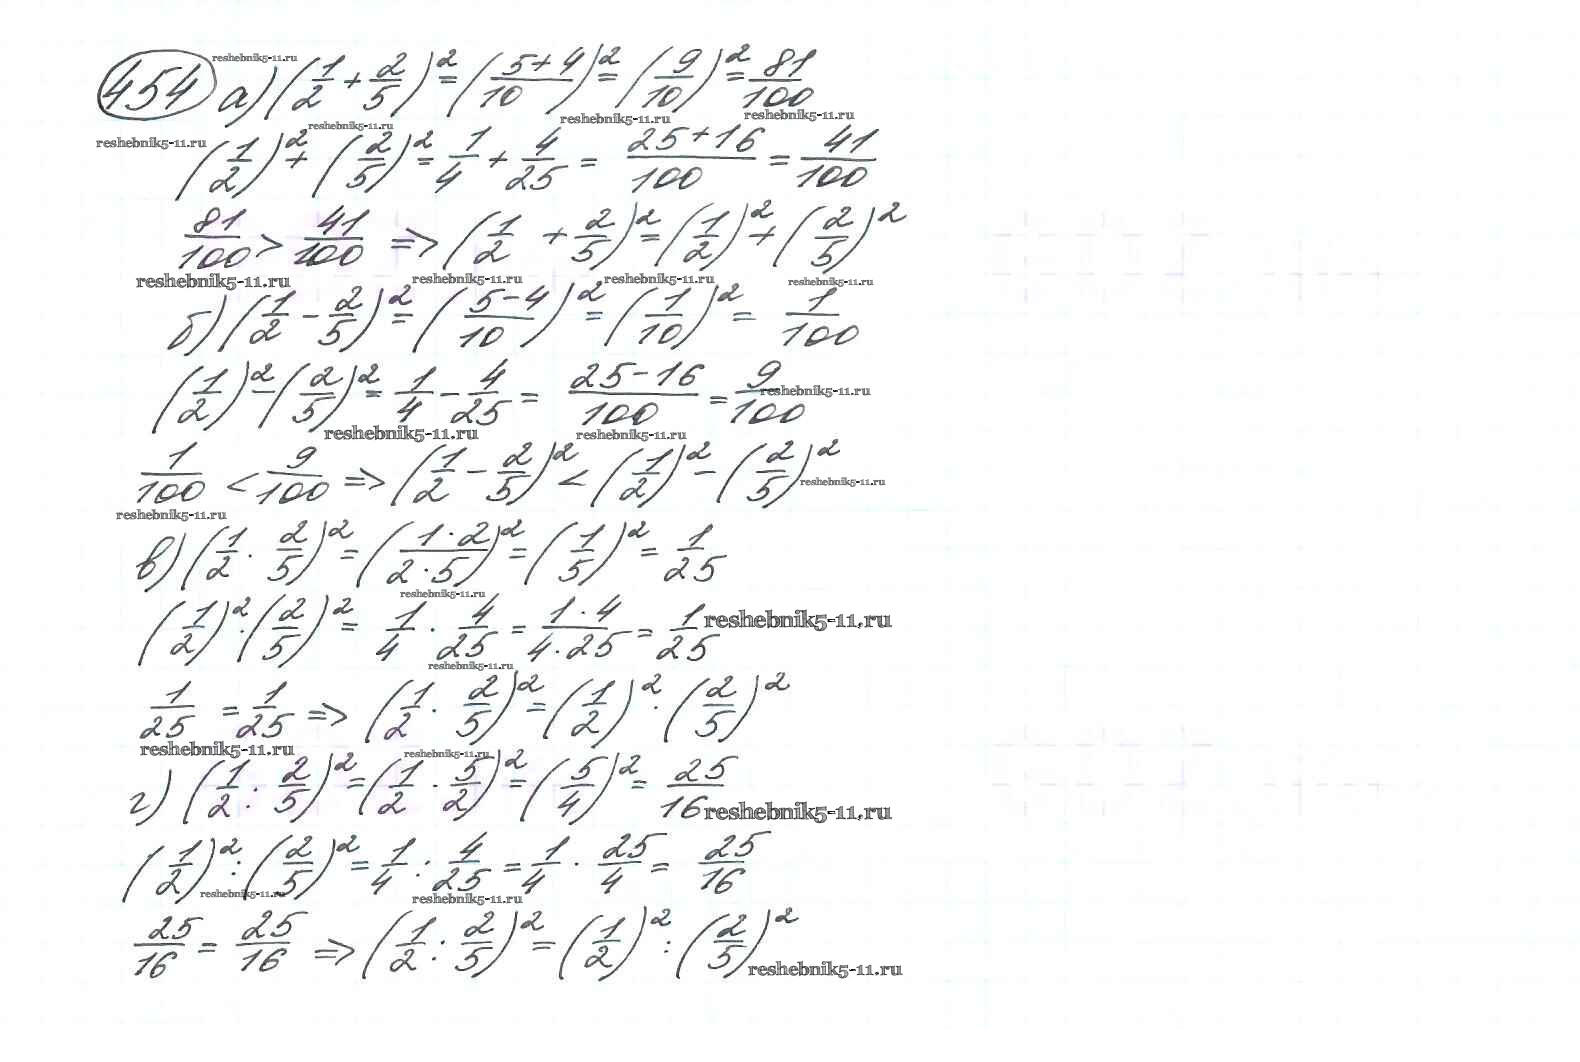 reshebnik5-11.ru
454 а) (1/2 + 2/5)² = ((5+4)/10)² = (9/10)² = 81/100
reshebnik5-11.ru reshebnik5-11.ru reshebnik5-11.ru reshebnik5-11.ru
(1/2)² + (2/5)² = 1/4 + 4/25 = (25+16)/100 = 41/100
81/100 > 41/100 => (1/2 + 2/5)² = (1/2)² + (2/5)²
reshebnik5-11.ru reshebnik5-11.ru reshebnik5-11.ru reshebnik5-11.ru
б) (1/2 - 2/5)² = ((5-4)/10)² = (1/10)² = 1/100
(1/2)² - (2/5)² = 1/4 - 4/25 = (25-16)/100 = 9/100 reshebnik5-11.ru
reshebnik5-11.ru reshebnik5-11.ru
1/100 < 9/100 => (1/2 - 2/5)² < (1/2)² - (2/5)² reshebnik5-11.ru
reshebnik5-11.ru
в) (1/2 · 2/5)² = ((1·2)/(2·5))² = (1/5)² = 1/25
reshebnik5-11.ru
(1/2)² · (2/5)² = 1/4 · 4/25 = (1·4)/(4·25) = 1/25 reshebnik5-11.ru
reshebnik5-11.ru
1/25 = 1/25 => (1/2 · 2/5)² = (1/2)² · (2/5)²
reshebnik5-11.ru reshebnik5-11.ru
г) (1/2 : 2/5)² = (1/2 · 5/2)² = (5/4)² = 25/16 reshebnik5-11.ru
(1/2)² : (2/5)² = 1/4 : 4/25 = 1/4 · 25/4 = 25/16
reshebnik5-11.ru reshebnik5-11.ru
25/16 = 25/16 => (1/2 : 2/5)² = (1/2)² : (2/5)²
reshebnik5-11.ru